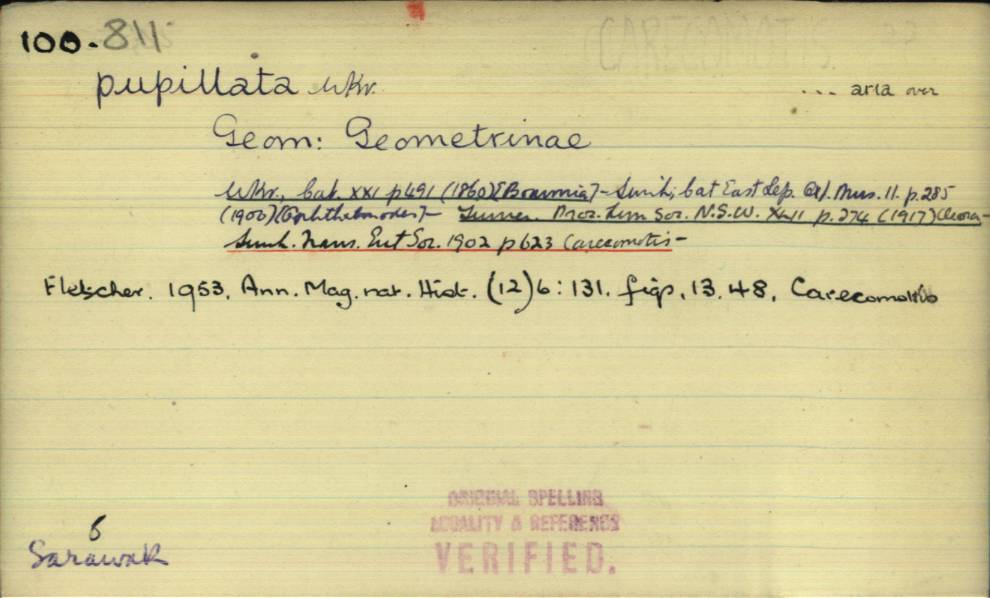 100-811
CARECOMOTIS
pupillata Wkr.
... aria over
Geom: Geometrinae
Wkr., Cat. XXI p491 (1860) [Boarmia] - Swinh, Cat East Lep. Ox. Mus. 11. p.285
(1900) [Ophthalmodes] - Turner. Proc. Linn Soc. N.S.W. XLII p.374 (1917) Cleora -
Swinh. Trans. Ent Soc. 1902 p623 Carecomotis -
Fletscher. 1953. Ann. Mag. nat. Hist. (12)6: 131. figs. 13. 48, Carecomotis
ORIGINAL SPELLING
LOCALITY & REFERENCE
VERIFIED.
Sarawak